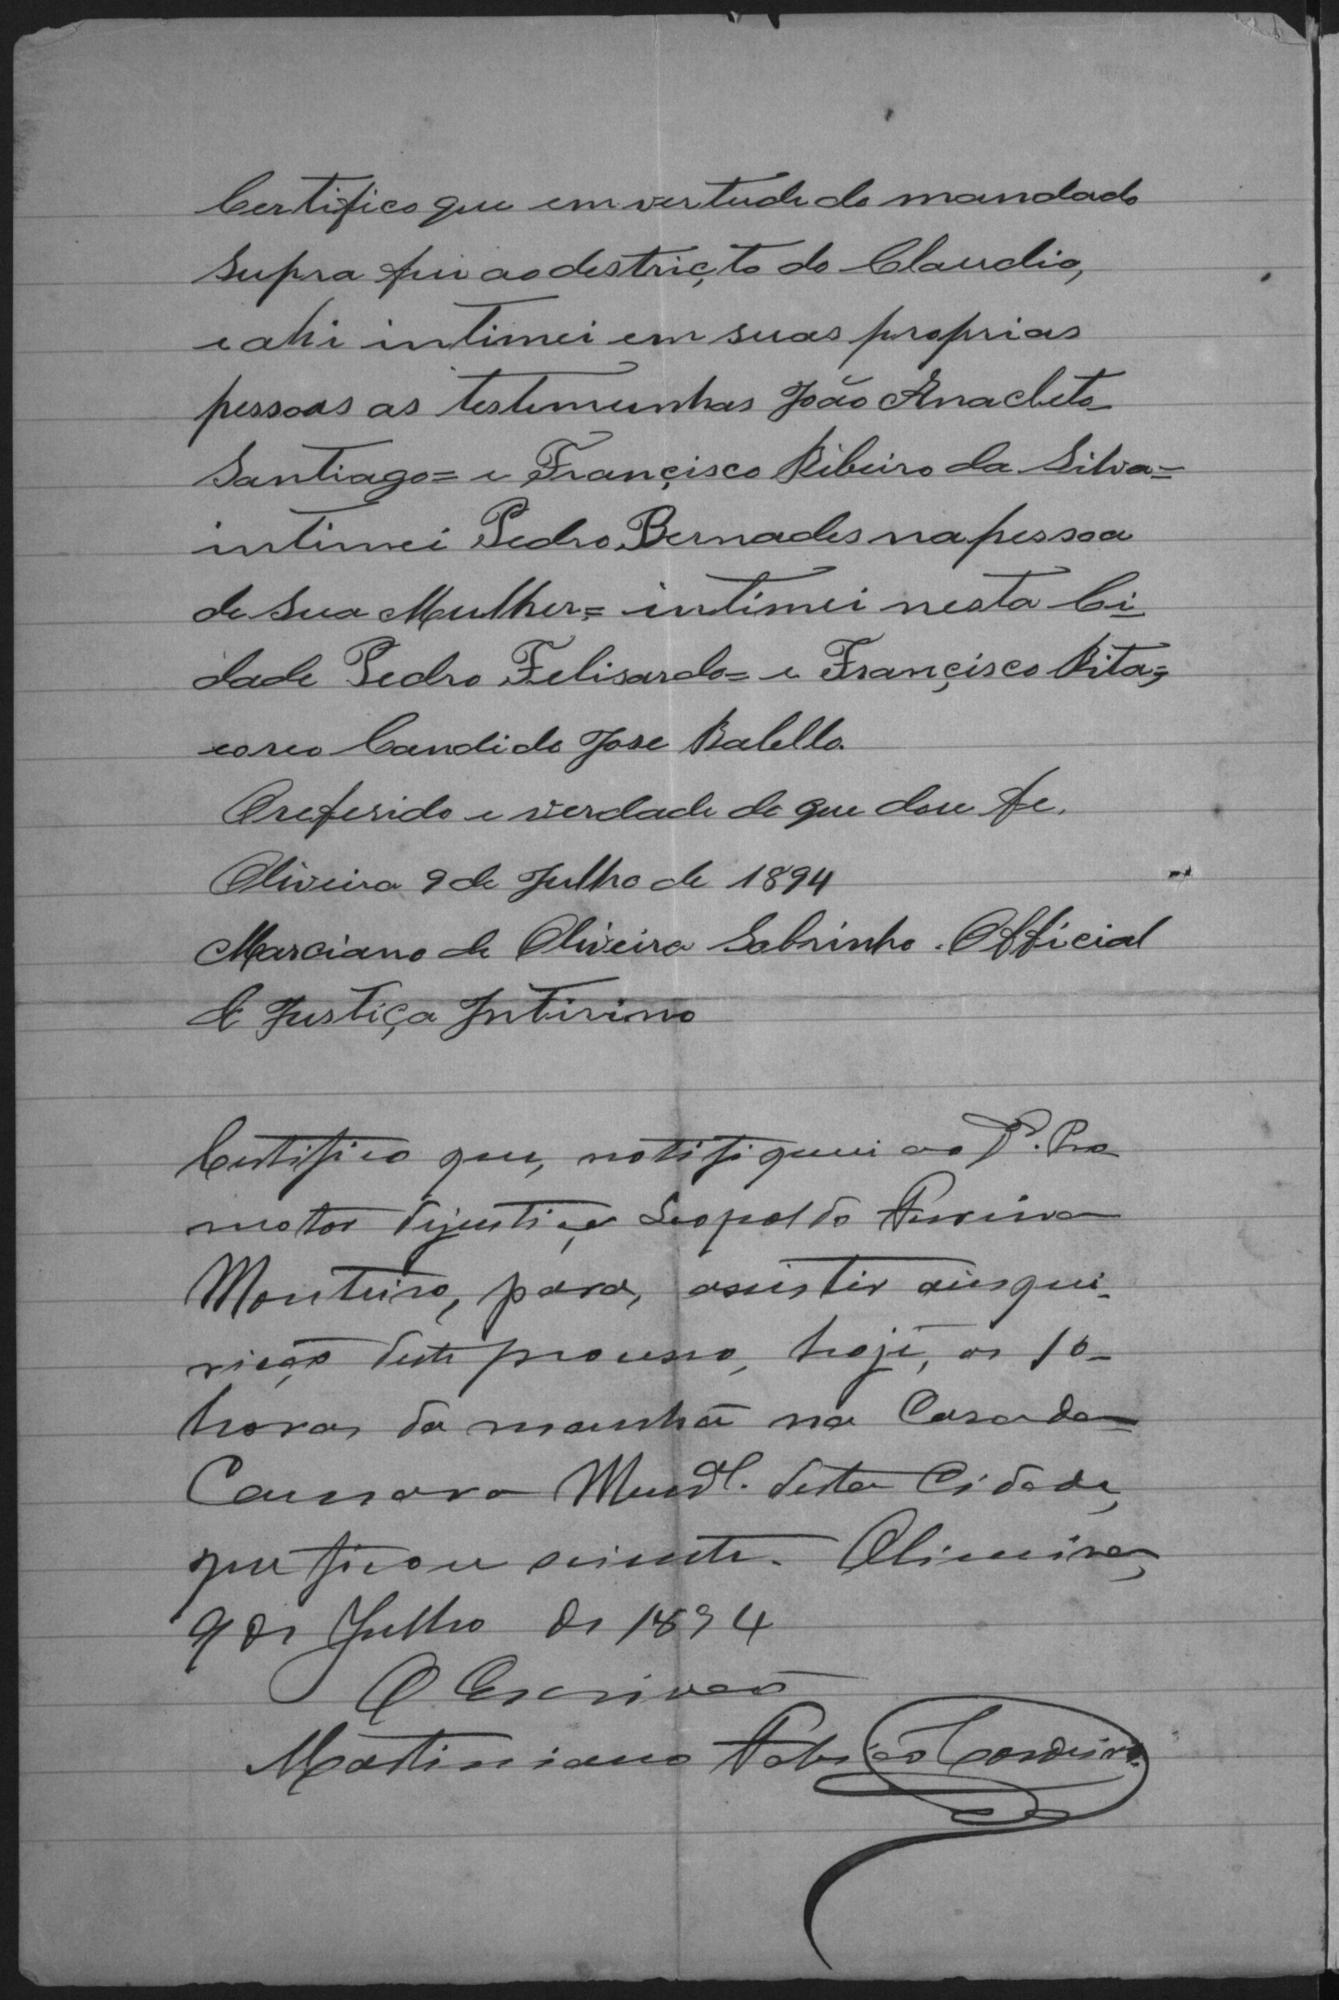 Certifico que em vertude do mandado
supra fui ao destricto do Claudio,
e ahi intimei em suas proprias
pessoas as testemunhas João Anacleto
Santiago= e Françisco Ribeiro da Silva=
intimei Pedro Bernades na pessoa
de sua Mulher= intimei nesta Ci
dade Pedro Felisardo= e Françisco Rita=
eoreo Candido Jose Rabello.
Oreferido e verdade de que dou fe.
Oliveira 9 de Julho de 1894
Marciano de Oliveira Sobrinho. Official
de Justiça Intirino
Certifico que, notifiquei ao Pro
motor dejustiça Leopoldo Ferreira
Monteiro, para, assistir ainqui
rição deste processo, hoje, as 10
horas da manhã na Casa da
Camara Munal. desta Cidade,
que ficou sciente. Oliveira,
9 de Julho de 1894
O Escrivão
Martiniano Cordeiro